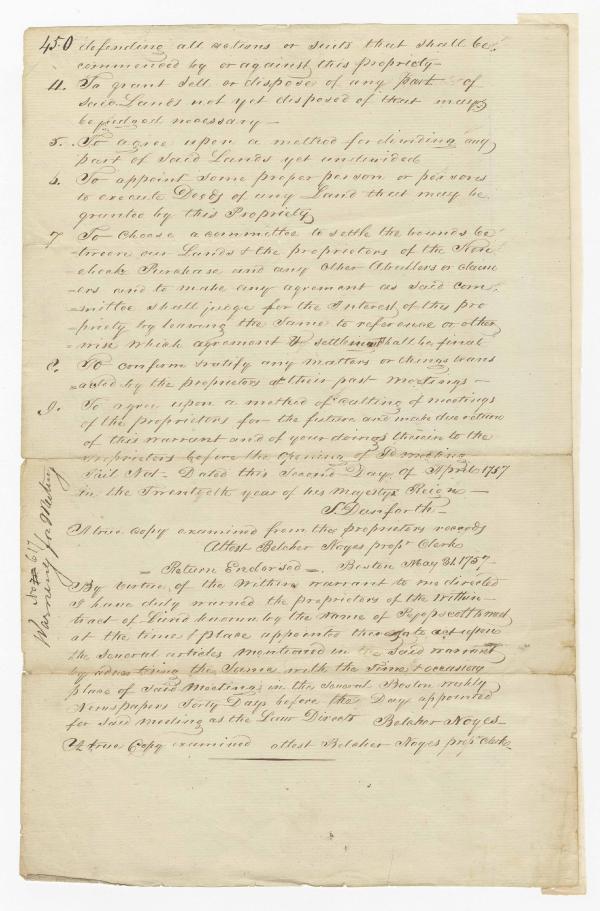 450 defending all actions or suits that shall be
commenced by or against this propriety
4. To grant sell or dispose of any part of
said Lands not yet disposed of that may
be judged necessary —
5. To agree upon a method for dividing any
part of said Lands yet undivided
6. To appoint some proper person or persons
to execute Deeds of any Land that may be
granted by this Propriety
7 To Choose a committee to settle the bounds be
tween our Lands & the proprietors of the Ken
ebeck Purchase and any other Abutters or claim
ers and to make any agrement as said com
mittee shall judge for the Interest of this pro
=priety by leaving the Same to reference or other
wise which agrement & settlement shall be final
8. To confirm & ratify any matters or things trans
=acted by the proprietors at their past meetings —
9. To agree upon a method of calling of meetings
of the proprietors for the future and make due return
of this warrant and of your doings therein to the
proprietors before the opening of Sd meeting
Fail Not — Dated this Second Day of April 1757
in the Twentieth year of his Majestys Reign —
S. Danforth —
A true Copy examined from the proprietors records
Attest Belcher Noyes propr Clerk
= Return Endorsed = . Boston May 31. 1757 —
By virtue of the Within warrant to me directed
I have duly warned the proprietors of the Within
tract of Land known by the name of Pejepscott to meet
at the time & place appointed then to act upon
the Several articles mentioned in the Said warrant
by advertising the Same with the Time & occasion
place of Said Meeting in the Several Boston weekly
Newspapers Forty Days before the Day appointed
for said meeting as the Law Directs Belcher Noyes
A true Copy examined attest Belcher Noyes propr Clerk
No 617
Warning for Meeting